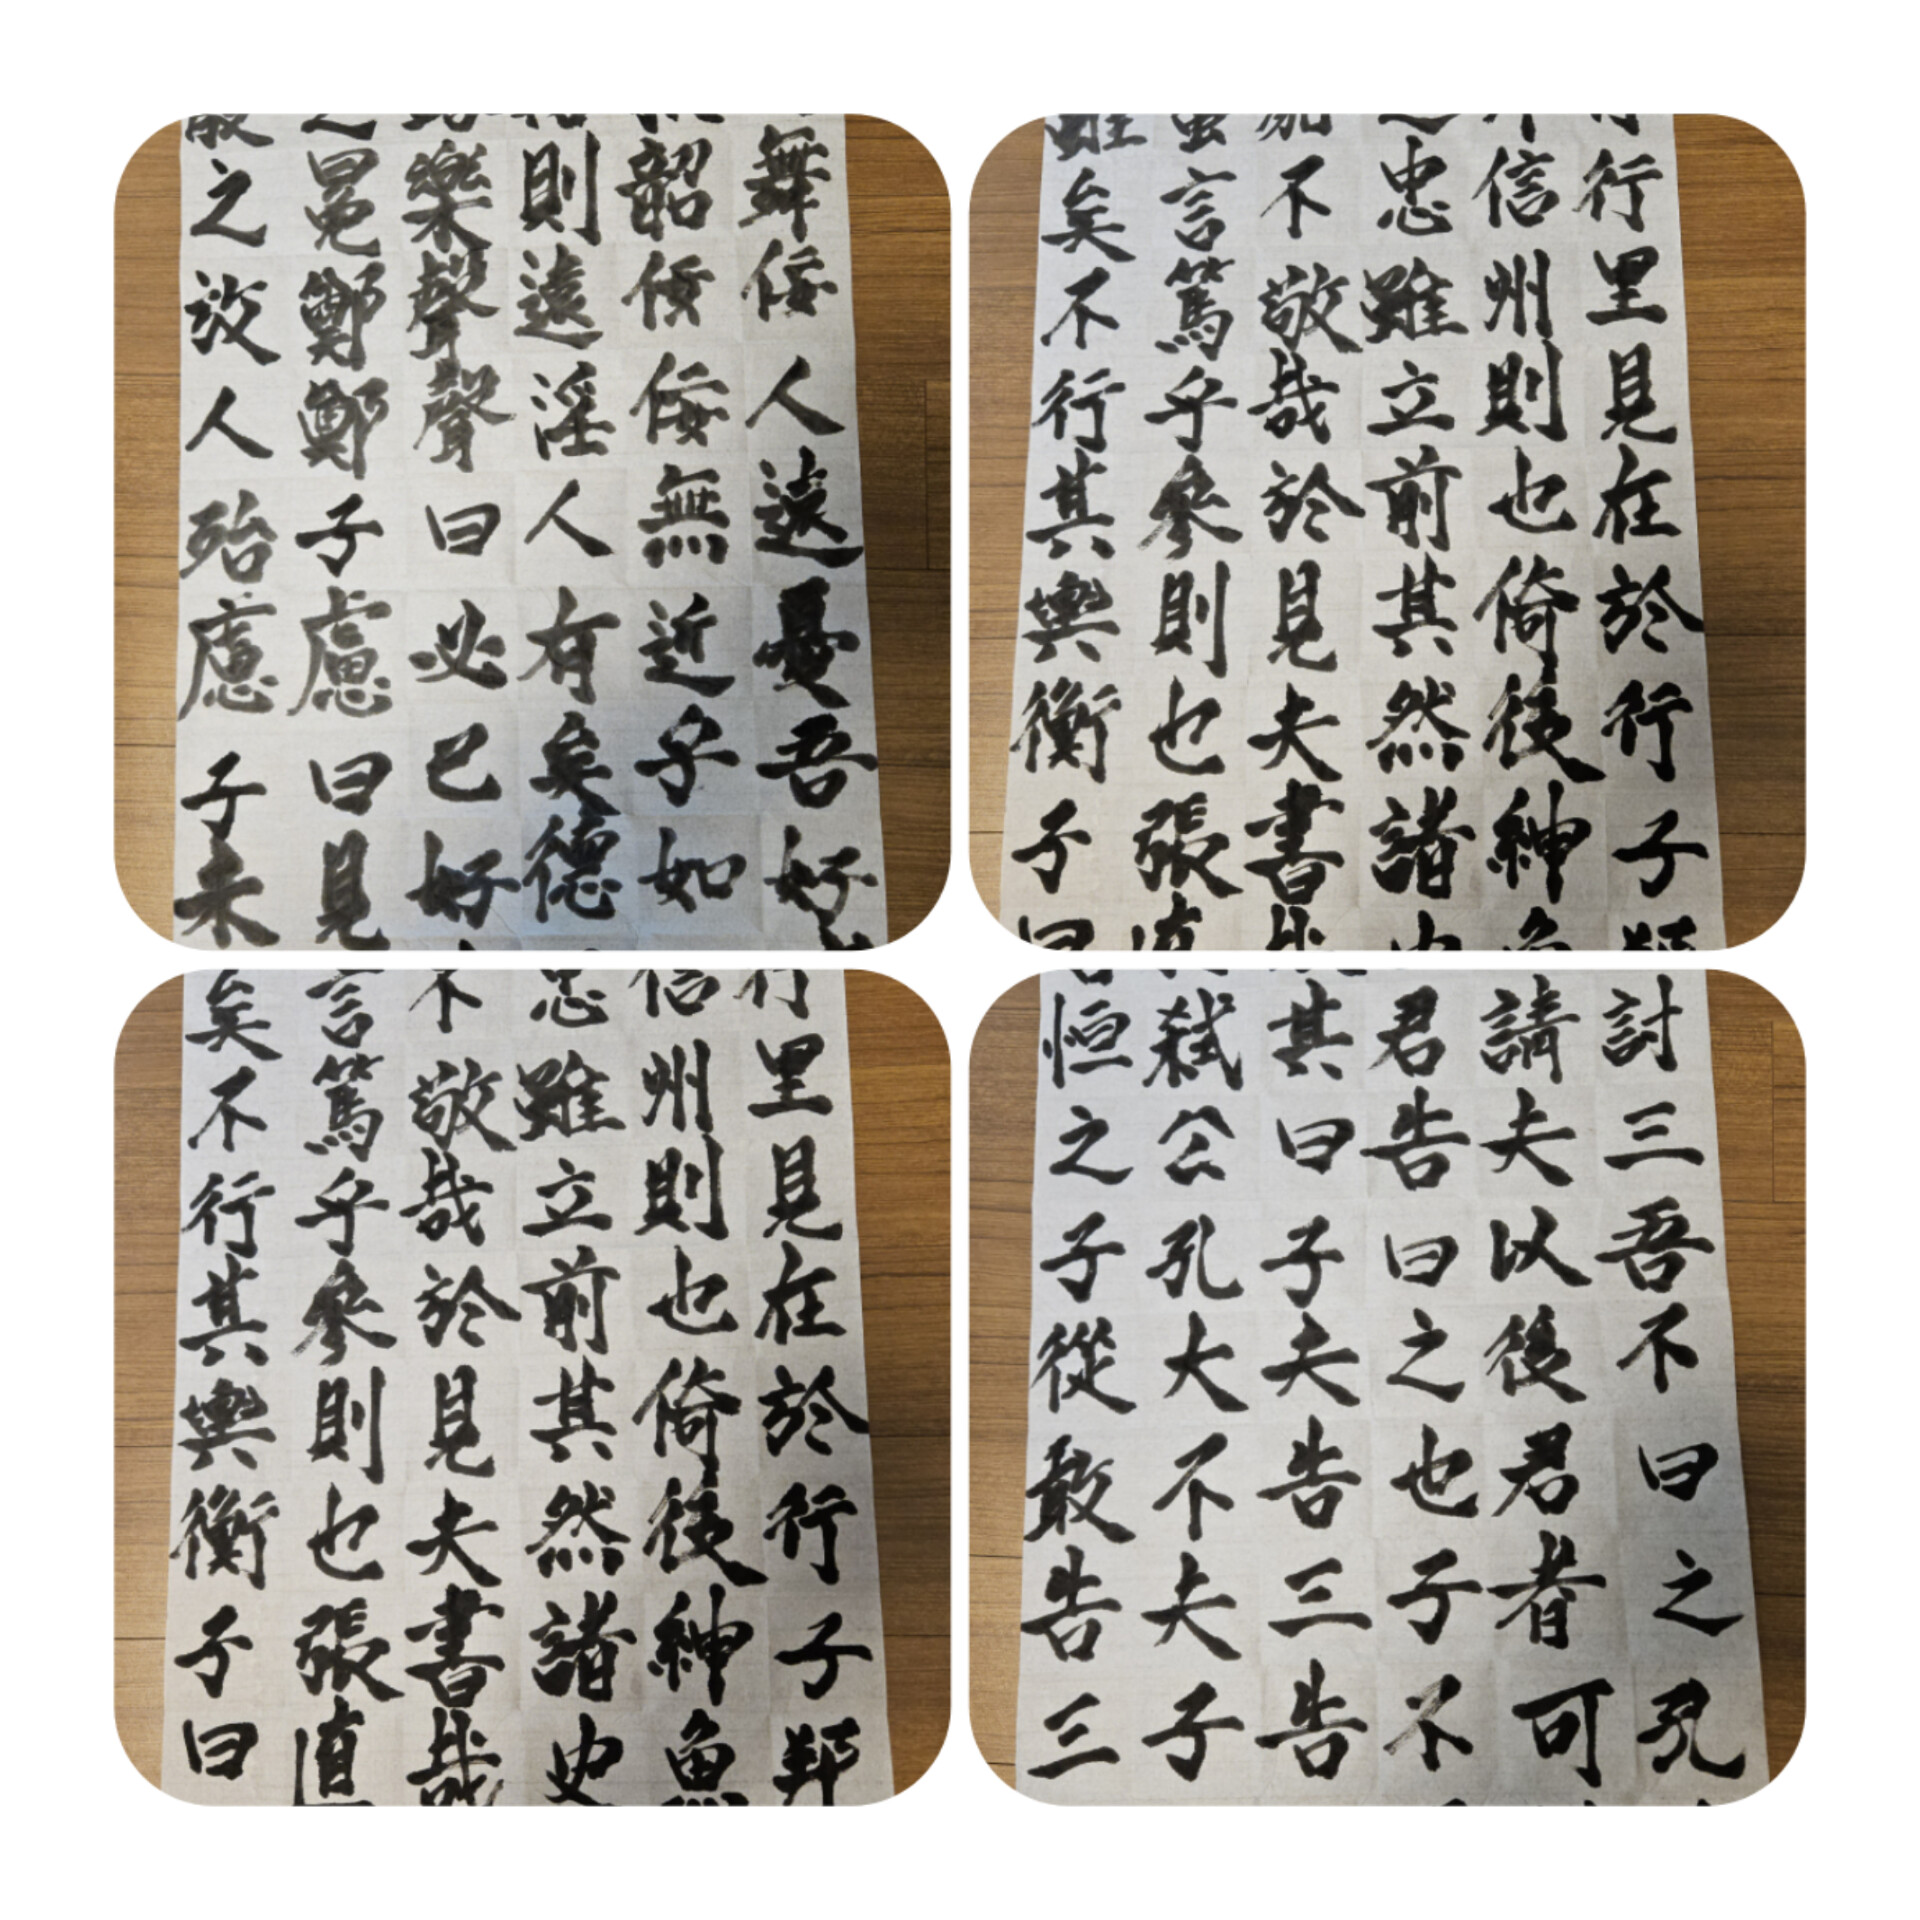 之冕樂則韶舞
放鄭聲遠佞佞
人鄭聲淫佞人
殆子曰人無遠
慮慮必有近憂
子曰已矣乎吾
未見好德如好
矣言不忠信行
不篤敬雖州里
行乎哉立則見
其參於前也在
輿則見其倚於
衡也夫然後行
子張書諸紳子
矣言不忠信行
不篤敬雖州里
行乎哉立則見
其參於前也在
輿則見其倚於
衡也夫然後行
子張書諸紳子
曰直哉史魚邦
恒弒其君請討
之公曰告夫三
子孔子曰以吾
從大夫之後不
敢不告也君曰
告夫三子者之
三子告不可孔